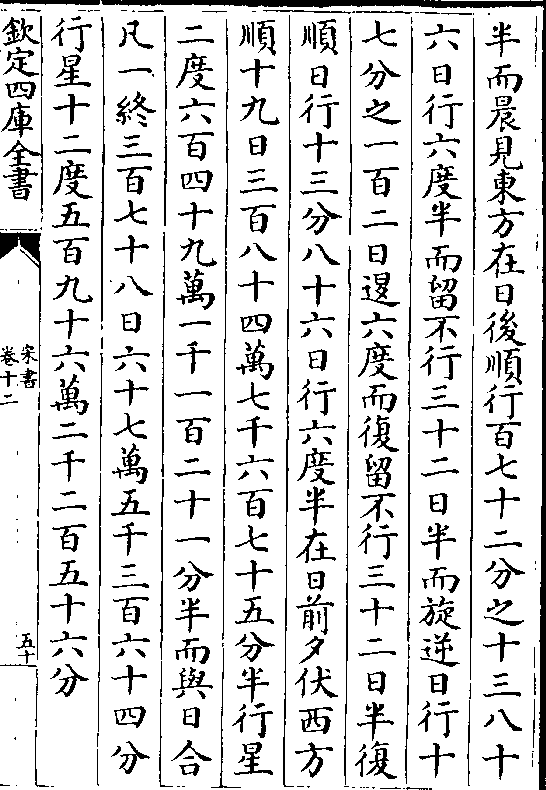 半而晨見東方在日後順行百七十二分之十三八十
六日行六度半而留不行三十二日半而旋逆日行十
七分之一百二日𨓆六度而復留不行三十二日半復
順日行十三分八十六日行六度半在日前夕伏西方
順十九日三百八十四萬七千六百七十五分半行星
二度六百四十九萬一千一百二十一分半而與日合
凡一終三百七十八日六十七萬五千三百六十四分
行星十二度五百九十六萬二千二百五十六分
欽定四庫全書
宋書
卷十二
五十